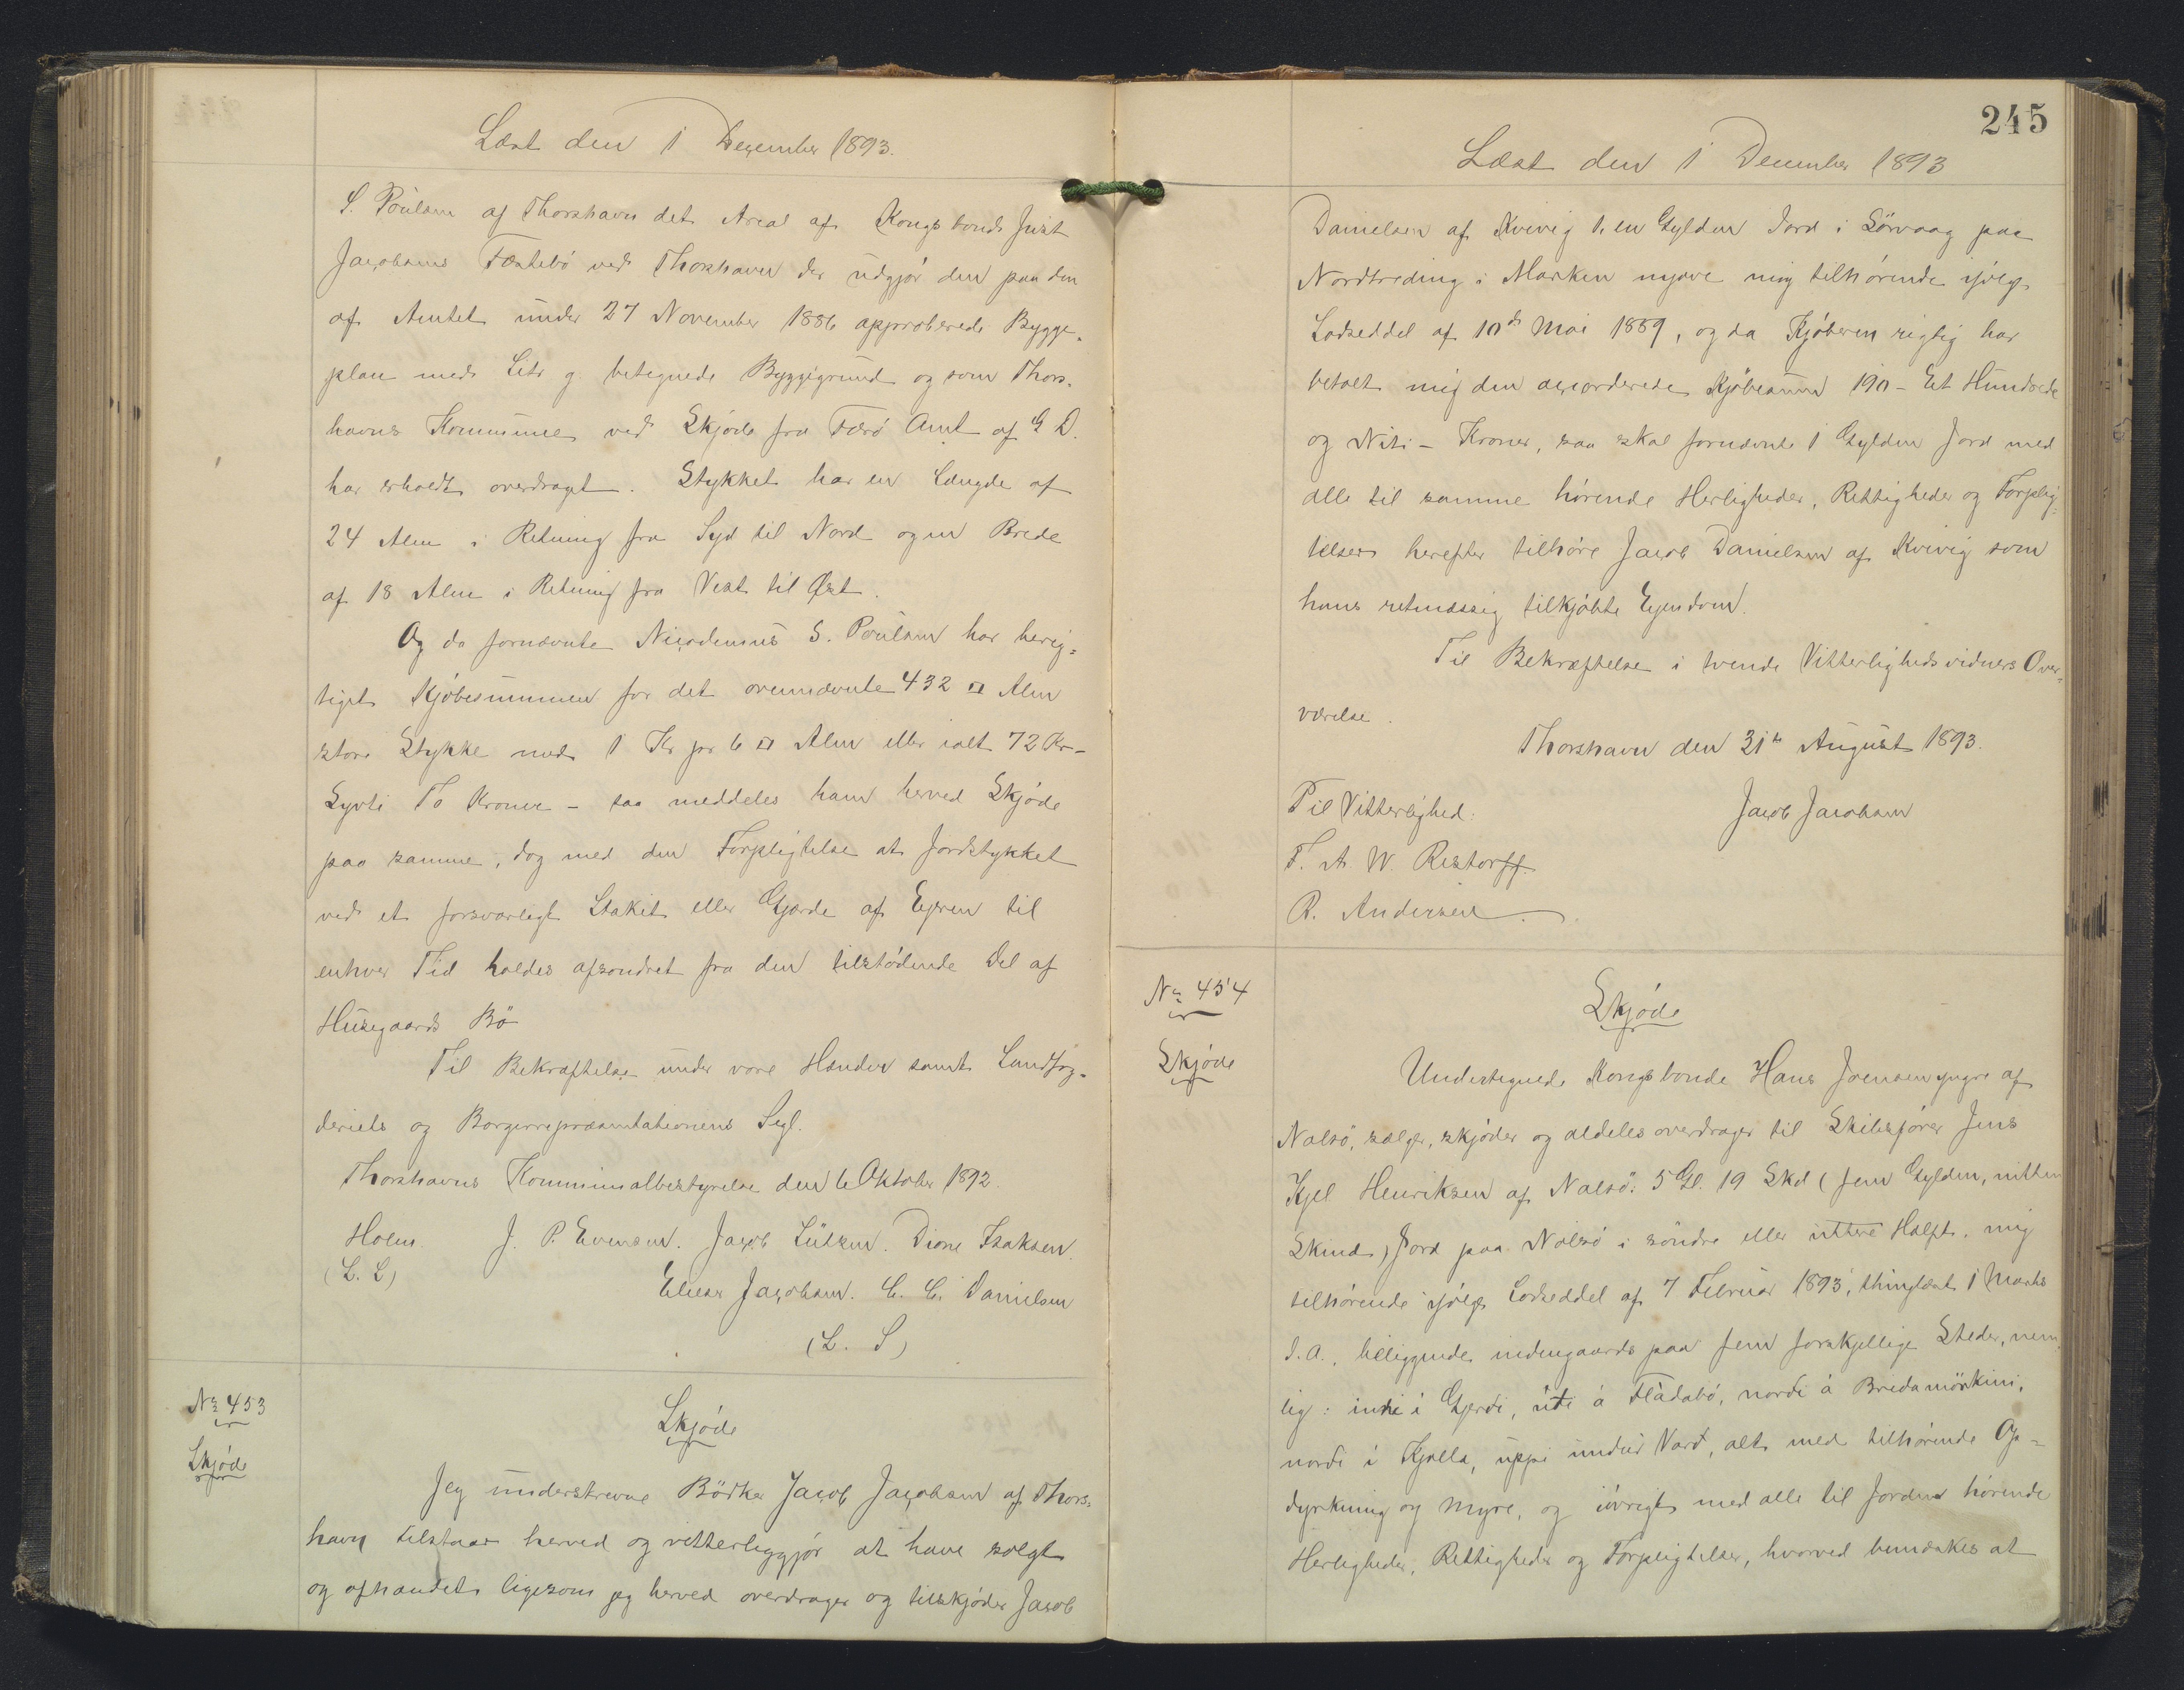 Læst den 1 Dezember 1893.
S. Poulsen af Thorshavn det Areal af Kongsbonde Just
Jacobsens Fæstebö ved Thorshavn der udgjör den paa den
af Amtet under 27 November 1886 approberede Bygge-
plan med Litr g. betegnede Byggegrund og som Thors-
havns Kommune ved Skjöde fra Færö Amt af G D.
har erholdt overdraget. Stykket har en Længde af
24 Alen i Retning fra Syd til Nord og en Brede
af 18 Alen i Retning fra Vest til Øst.
Og da fornævnte Nicodemus S. Poulsen har berig-
tiget Kjöbesummen for det ovennævnte 432 □ Alen
store Stykke med 1 Kr pr 6 □ Alen eller ialt 72 Kr-
Syvti To Kroner - saa meddeles ham herved Skjöde
paa samme, dog med den Forpligtelse at Jordstykket
ved et forsvarligt Stakit eller Gjærde af Ejeren til
enhver Tid holdes afsondret fra den tilstödende Del af
Husegaards Bö
Til Bekræftelse under vore Hænder samt Landfog-
deriets og Borgerrepræsentationens Segl.
Thorshavns Kommunalbestyrelse den 6 Oktober 1892.
Holm. J. P. Evensen. Jacob Lützen. Dione Isaksen.
(L. S)
Elieser Jacobsen. C. C. Danielsen
(L. S)
No 453
Skjöde
Skjöde
Jeg underskrevne Bödker Jacob Jacobsen af Thors-
havn tilstaar herved og vitterliggjör at have solgt
og afhændet ligesom jeg herved overdrager og tilskjöder Jacob
245
Læst den 1 December 1893
Danielsen af Kvivig 1, en Gylden Jord i Sörvaag paa
Nordtreding i Marken nyore mig tilhörende ifölge
Lodseddel af 10de Mai 1889, og da Kjöberen rigtig har
betalt mig den accorderede Kjöbesum 190 - Et Hundrede
og Niti - Kroner, saa skal fornævnte 1 Gylden Jord med
alle til samme hörende Herligheder, Rettigheder og Forplig-
telser herefter tilhöre Jacob Danielsen af Kvivig som
hans retmæssig tilkjöbte Ejendom.
Til Bekræftelse i tvende Vitterlighedsvidners Over-
værelse.
Thorshavn den 31te August 1893.
Til Vitterlighed:
Jacob Jacobsen
F. A. W. Restorff.
R. Andersen
No 454
Skjöde
Skjöde
Undertegnede Kongsbonde Hans Joensen yngre af
Nolsö, sælger, skjöder og aldeles overdrager til Skibsförer Jens
Kjel Henriksen af Nolsö: 5 Gl. 19 Skd (fem Gylden, nitten
Skind) Jord paa Nolsö i söndre eller uttere Halft, mig
tilhörende ifölge Lodseddel af 7 Februar 1893, thinglæst 1 Marts
d. A., beliggende indengaards paa fem forskjellige Steder, nem-
lig: inni i Gjerdi, úti á Flådabó, nordi á Breidamörkini,
nordi i Kjalla, uppi undir Vard, alt med tilhörende Op-
dyrkning og Myre, og iövrigt med alle til Jorden hörende
Herligheder, Rettigheder og Forpligtelser, hvorved bemærkes at